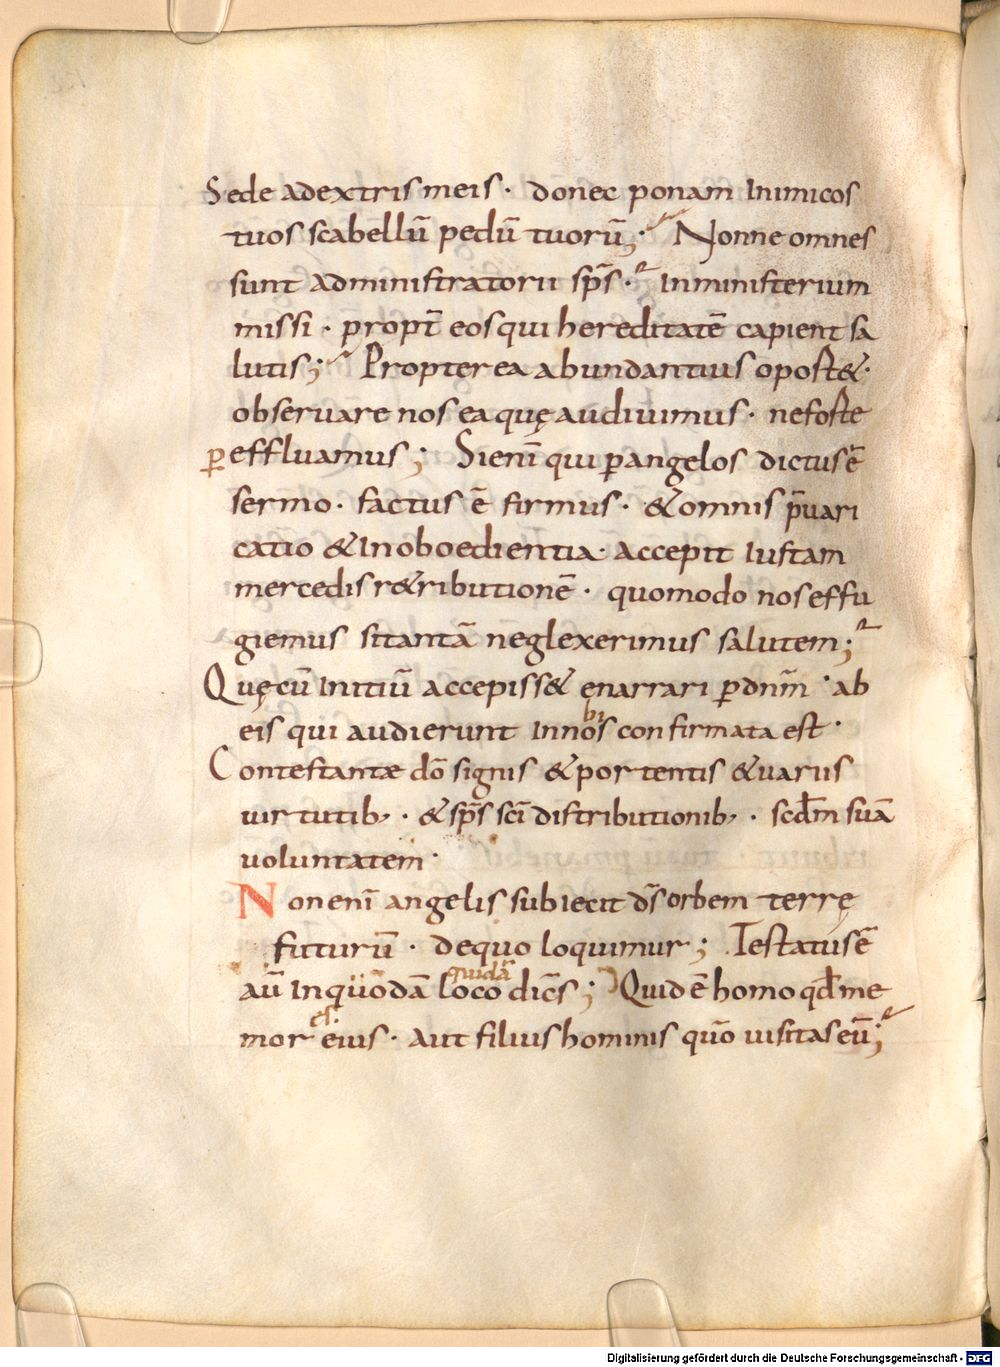 Sede adextris meis · donec ponam Inimicos
tuos scabellū pedū tuorū; Nonne omnes
sunt Administratorii sp̄s · Inministerium
missi · propt̄ eos qui hereditatē capient sa
lutis; Propterea abundantius oport&
observare nos ea quę audiuimus · neforte
p̱effluamus; Sienī qui p̱angelos dictus ē
sermo · factus ē firmus · &omnis p̄uari
catio &Inoboedientia · Accepit Iustam
mercedis r&ributionē · quomodo nos effu
giemus sitantā neglexerimus salutem;
Quęcū Initiū accepiss& enarrari p̱dn̄m · ab
eis qui audierunt Innobis confirmata est ·
Contestante dō signis &portentis &uariis
uirtutib, · &sp̄s sc̄i distributionib, · scd̄m suā
uoluntatem ·
Non enī angelis subiecit d̄s orbem terrę
futurū · dequo loquimur; Testatus ē
aū Inquodā loco quidā dic̄s; Quid ē homo qd̄ me
mor es eius · Aut filius hominis qūo uisitas eū;
Digitalisierung gefördert durch die Deutsche Forschungsgemeinschaft - DFG